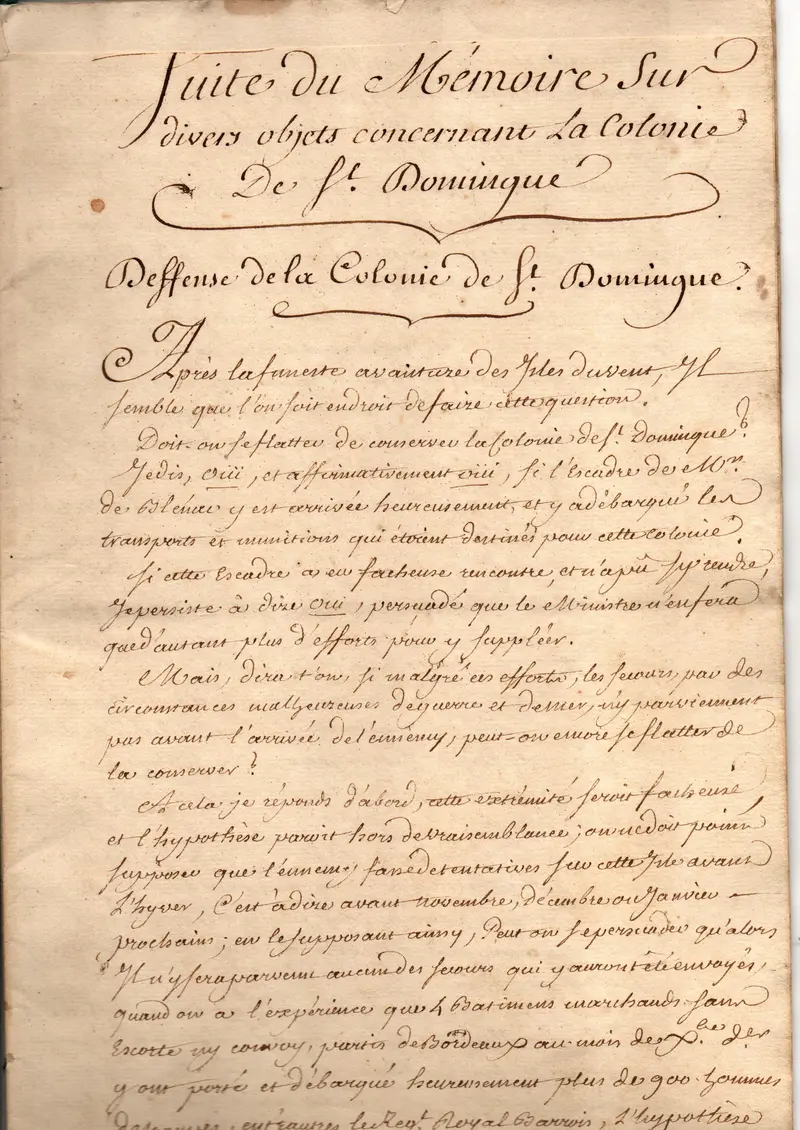 Suite du Mémoire Sur
divers objets concernant La Colonie
De St. Domingue
Deffense de la Colonie de St. Domingue.
Après la funeste avanture des Isles du vent, Il
semble que l'on soit en droit de faire cette question.
Doit-on se flatter de conserver la Colonie de St. Domingue?
Je dis, oüi, et affirmativement oüi, si l'Escadre de Mr.
de Blénac y est arrivée heureusement, et y a débarqué les
transports et munitions qui étoient destinés pour cette Colonie.
Si cette Escadre a eu facheuse rencontre, et n'a pû s'y rendre,
Je persiste à dire oui, persuadé que le Ministre n'en fera
que d'autant plus d'efforts pour y suppléer.
Mais, dira t'on, si malgré ces efforts, les secours, par des
circonstances malheureuses de guerre et de mer, n'y parviennent
pas avant l'arrivée de l'ennemy, peut-on encore se flatter de
la conserver?
A cela je réponds d'abord, cette extrémité seroit facheuse,
et l'hypothèse paroit hors de vraisemblance; on ne doit point
supposer que l'ennemy fasse de tentatives sur cette Isle avant
L'hyver, C'est à dire avant novembre, décembre ou Janvier
prochains; en le supposant ainsy, Peut on se persuader qu'alors
Il n'y sera parvenu aucun des secours qui y auront été envoyés,
quand on a l'expérience que 4 Batimens marchands sans
Escorte ny convoy, partis de Bordeaux au mois de Xbre. der
y ont porté et débarqué heureusement plus de 900 hommes
entr'autres le Regt. Royal Barrois, L'hypothèse